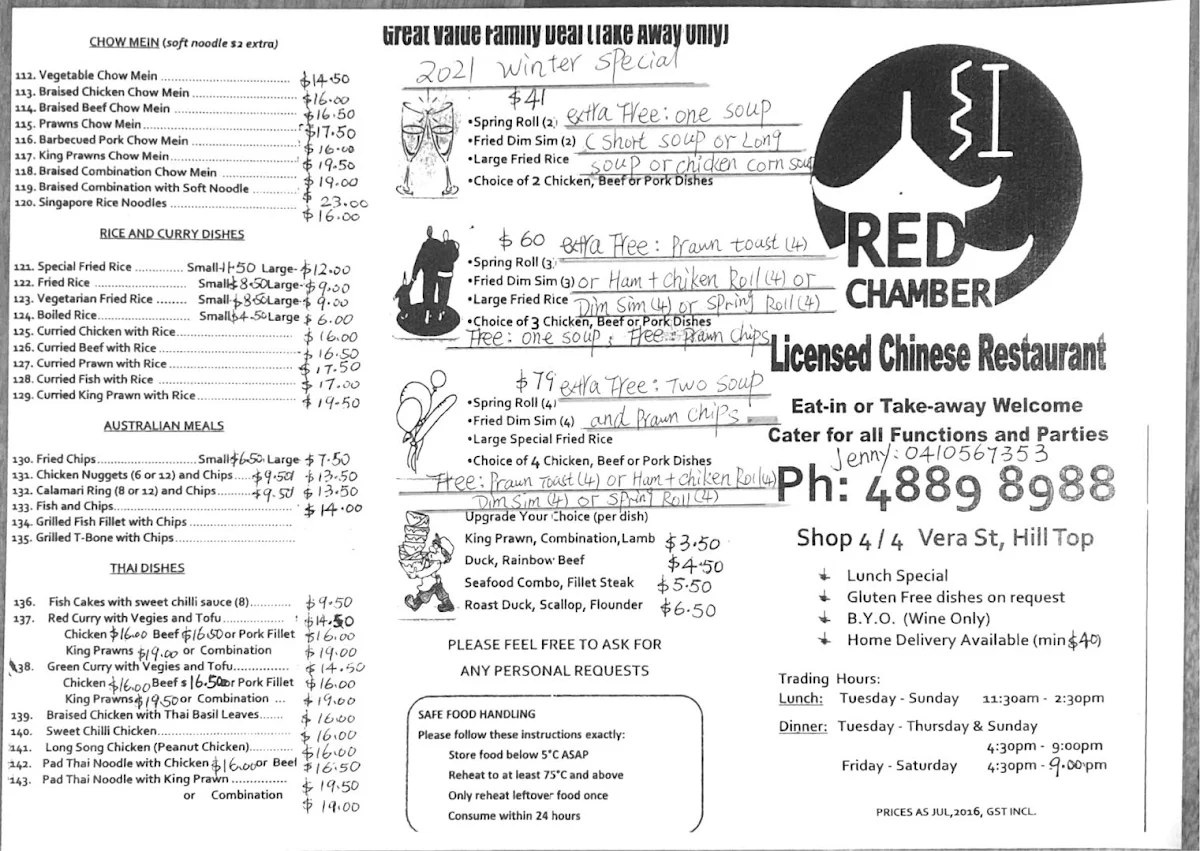 CHOW MEIN (soft noodle $2 extra)
112. Vegetable Chow Mein $14.50
113. Braised Chicken Chow Mein $16.00
114. Braised Beef Chow Mein $16.50
115. Prawns Chow Mein $17.50
116. Barbecued Pork Chow Mein $16.00
117. King Prawns Chow Mein $19.50
118. Braised Combination Chow Mein $19.00
119. Braised Combination with Soft Noodle $23.00
120. Singapore Rice Noodles $16.00
RICE AND CURRY DISHES
121. Special Fried Rice Small- Large- $12.00
122. Fried Rice Small$8.50 Large- $9.00
123. Vegetarian Fried Rice Small-$8.50 Large- $9.00
124. Boiled Rice Small$4.50 Large $6.00
125. Curried Chicken with Rice $16.00
126. Curried Beef with Rice $16.50
127. Curried Prawn with Rice $17.50
128. Curried Fish with Rice $17.00
129. Curried King Prawn with Rice $19-50
AUSTRALIAN MEALS
130. Fried Chips Small$6.50 Large $7.50
131. Chicken Nuggets (6 or 12) and Chips $9.50/ $13.50
132. Calamari Ring (8 or 12) and Chips $9.50/ $13.50
133. Fish and Chips $14.00
134. Grilled Fish Fillet with Chips
135. Grilled T-Bone with Chips
THAI DISHES
136. Fish Cakes with sweet chilli sauce (8) $9.50
137. Red Curry with Vegies and Tofu $14.50
Chicken $16.00 Beef $16.50 or Pork Fillet $16.00
King Prawns $19.00 or Combination $19.00
138. Green Curry with Vegies and Tofu $14.50
Chicken $16.00 Beef $16.50 or Pork Fillet $16.00
King Prawns $19.50 or Combination ... $19.00
139. Braised Chicken with Thai Basil Leaves $16.00
140. Sweet Chilli Chicken $16.00
141. Long Song Chicken (Peanut Chicken) $16.00
142. Pad Thai Noodle with Chicken $16.00 or Beef $16.50
143. Pad Thai Noodle with King Prawn $19.50
or Combination $19.00
Great Value Family Deal (Take Away Only)
2021 Winter Special
$41
•Spring Roll (2) extra Free: one soup
•Fried Dim Sim (2) (Short soup or Long
•Large Fried Rice soup or chicken corn soup
•Choice of 2 Chicken, Beef or Pork Dishes
$60 extra Free: Prawn toast (4)
•Spring Roll (3)
•Fried Dim Sim (3) or Ham + Chiken Roll (4) or
•Large Fried Rice Dim Sim (4) or Spring Roll (4)
•Choice of 3 Chicken, Beef or Pork Dishes
Free: one soup, Free: Prawn chips
$79 extra Free: Two Soup
•Spring Roll (4)
•Fried Dim Sim (4) and Prawn Chips
•Large Special Fried Rice
•Choice of 4 Chicken, Beef or Pork Dishes
Free: Prawn Toast (4) or Ham + chiken Roll(4)
Dim Sim (4) or Spring Roll (4)
Upgrade Your Choice (per dish)
King Prawn, Combination, Lamb $3.50
Duck, Rainbow Beef $4.50
Seafood Combo, Fillet Steak $5.50
Roast Duck, Scallop, Flounder $6.50
PLEASE FEEL FREE TO ASK FOR
ANY PERSONAL REQUESTS
SAFE FOOD HANDLING
Please follow these instructions exactly:
Store food below 5°C ASAP
Reheat to at least 75°C and above
Only reheat leftover food once
Consume within 24 hours
RED
CHAMBER
Licensed Chinese Restaurant
Eat-in or Take-away Welcome
Cater for all Functions and Parties
Jenny: 0410567353
Ph: 4889 8988
Shop 4/4 Vera St, Hill Top
Lunch Special
Gluten Free dishes on request
B.Y.O. (Wine Only)
Home Delivery Available (min $40)
Trading Hours:
Lunch: Tuesday - Sunday 11:30am - 2:30pm
Dinner: Tuesday - Thursday & Sunday
4:30pm - 9:00pm
Friday - Saturday 4:30pm - 9.00pm
PRICES AS JUL,2016, GST INCL.